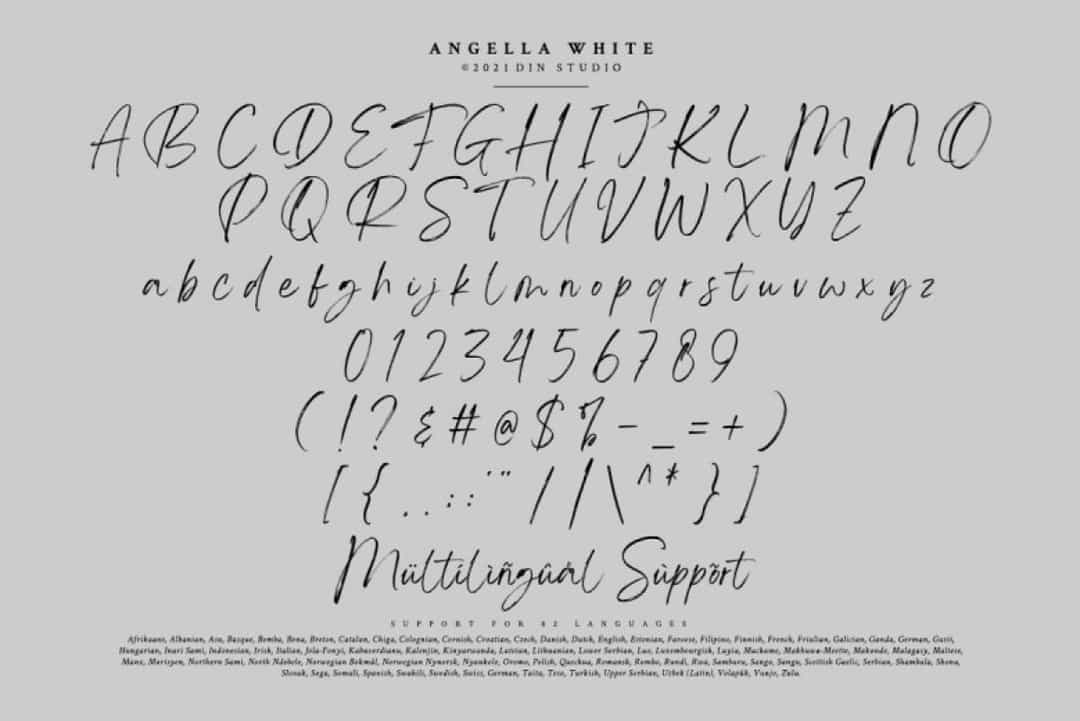 ANGELLA WHITE
©2021 DIN STUDIO
A B C D E F G H I J K L M N O
P Q R S T U V W X Y Z
a b c d e f g h i j k l m n o p q r s t u v w x y z
0 1 2 3 4 5 6 7 8 9
( ! ? & # @ $ % - _ = + )
[ { . . : : ' " / | \ ^ * } ]
Mültilìñgûál Sùppõrt
SUPPORT FOR 82 LANGUAGES
Afrikaans, Albanian, Asu, Basque, Bemba, Bena, Breton, Catalan, Chiga, Colognian, Cornish, Croatian, Czech, Danish, Dutch, English, Estonian, Faroese, Filipino, Finnish, French, Friulian, Galician, Ganda, German, Gusii,
Hungarian, Inari Sami, Indonesian, Irish, Italian, Jola-Fonyi, Kabuverdianu, Kalenjin, Kinyarwanda, Latvian, Lithuanian, Lower Serbian, Luo, Luxembourgish, Luyia, Machame, Makhuwa-Meetto, Makonde, Malagasy, Maltese,
Manx, Morisyen, Northern Sami, North Ndebele, Norwegian Bokmål, Norwegian Nynorsk, Nyankole, Oromo, Polish, Quechua, Romansh, Rombo, Rundi, Rwa, Samburu, Sango, Sangu, Scottish Gaelic, Serbian, Shambala, Shona,
Slovak, Soga, Somali, Spanish, Swahili, Swedish, Swiss, German, Taita, Teso, Turkish, Upper Serbian, Uzbek (Latin), Volapük, Vunjo, Zulu.